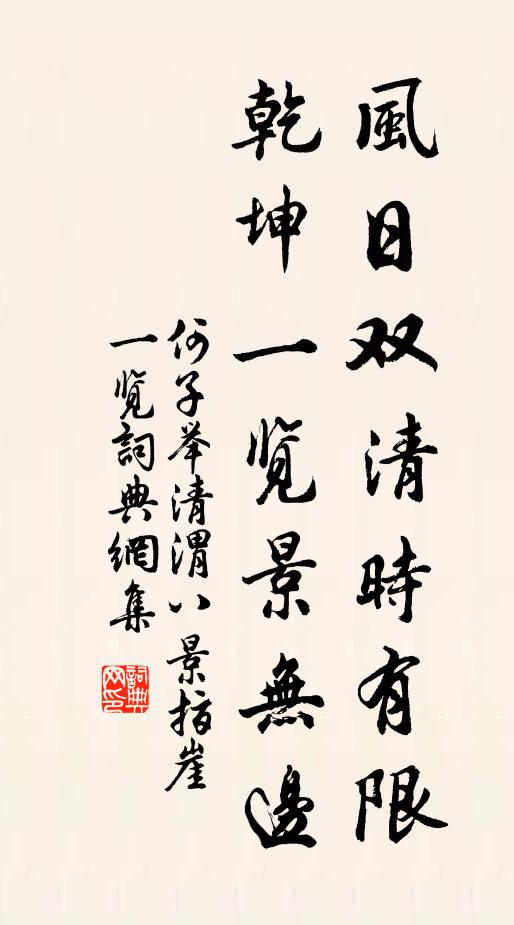 風日双清時有限
乾坤一览景無邊
何子举清渭八景指崖
一览詞典網集
詞典网印